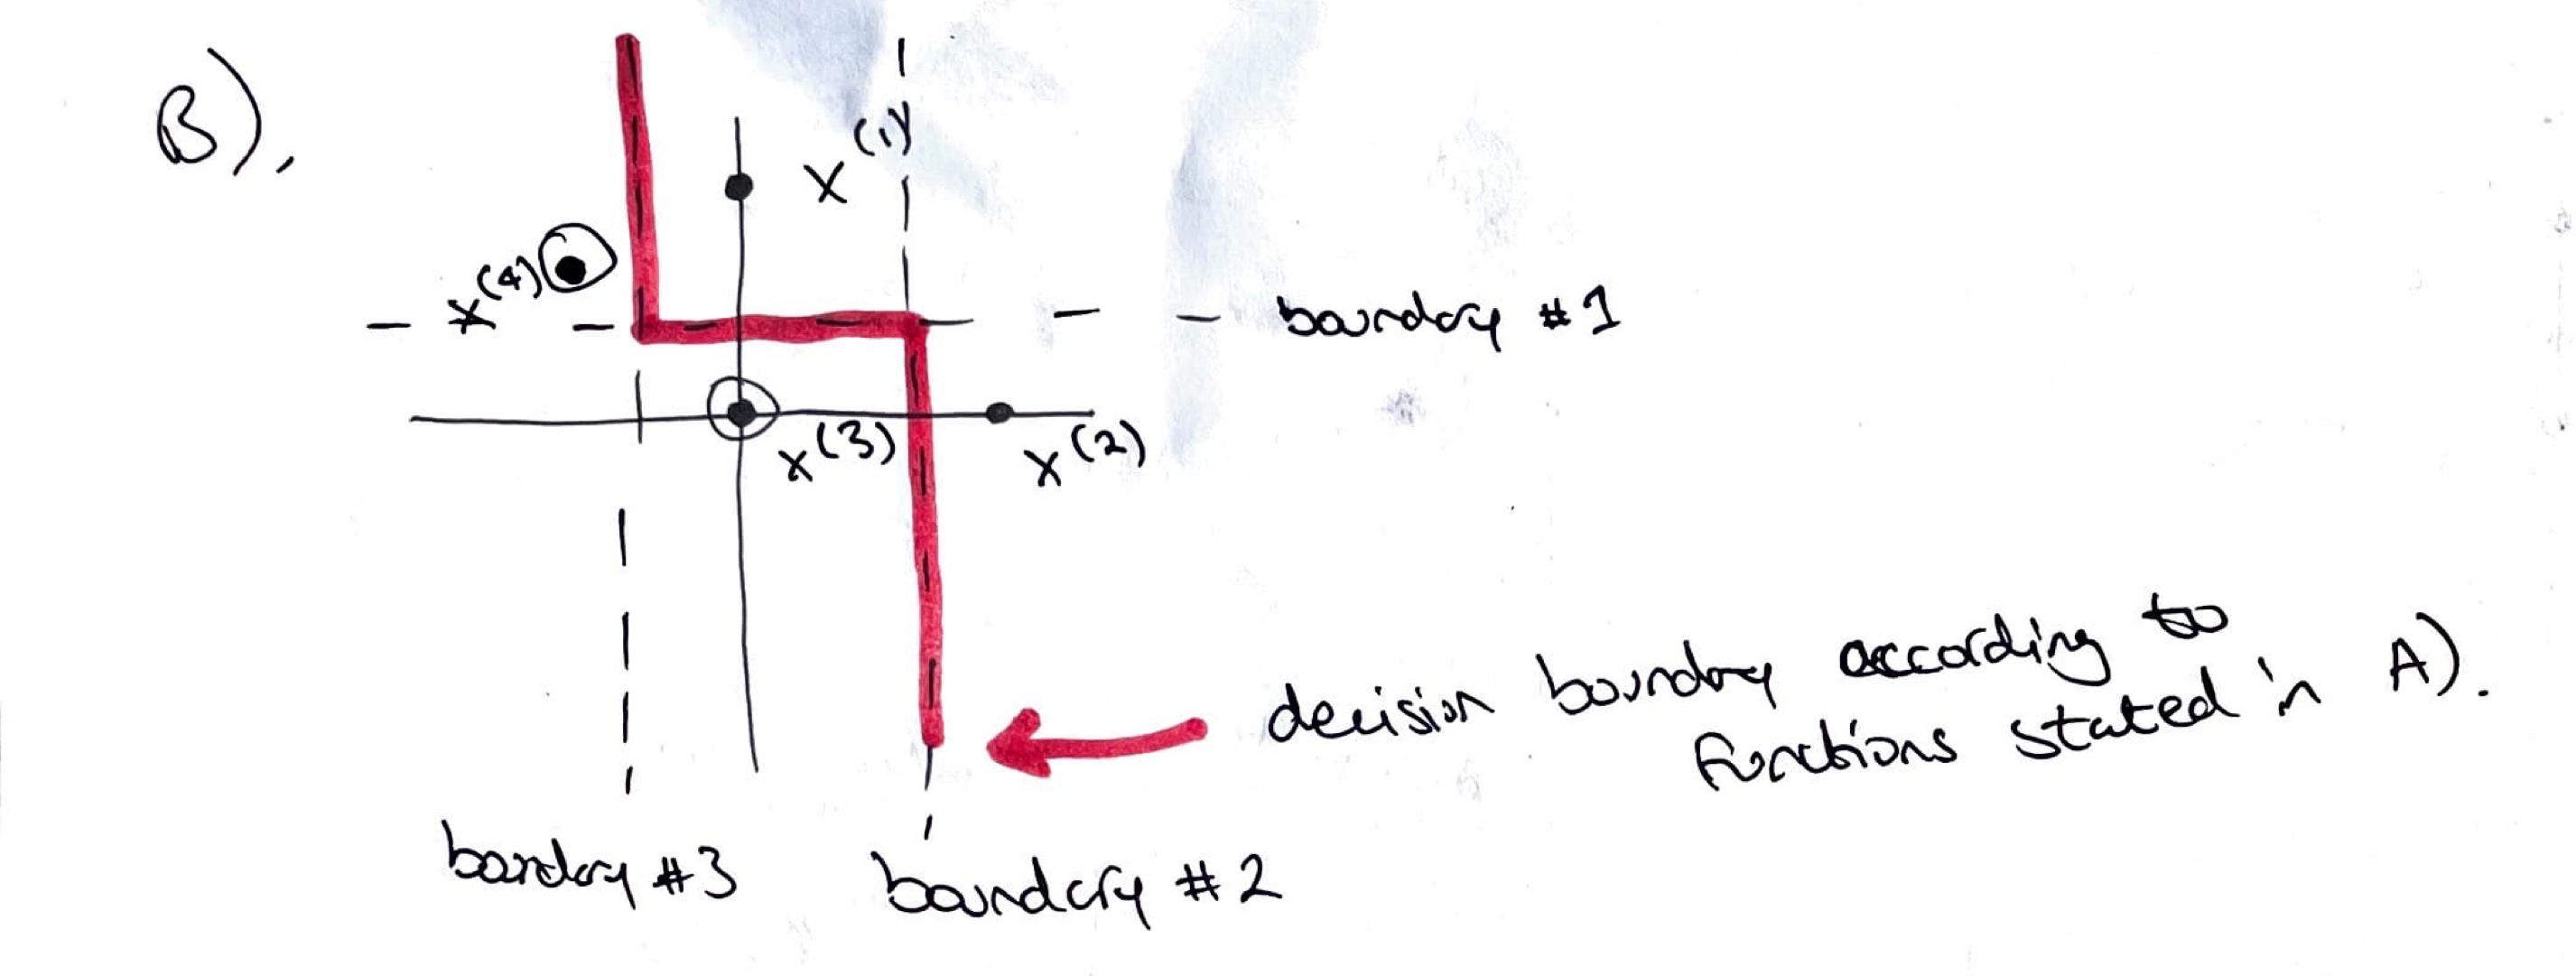 B),
x^(1)
x^(4)
boundary #1
x^(3)
x^(2)
decision boundary according to
functions stated in A).
boundary #3
boundary #2